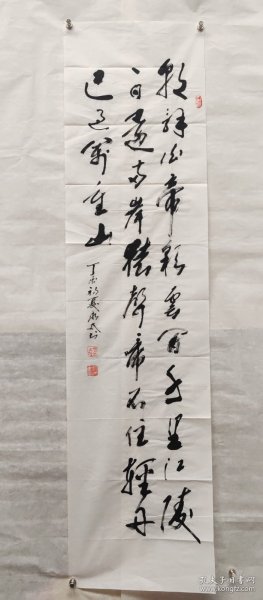 朝辞白帝彩云间千里江陵
一日还两岸猿声啼不住轻舟
已过万重山
丁酉初夏
孔夫子旧书网